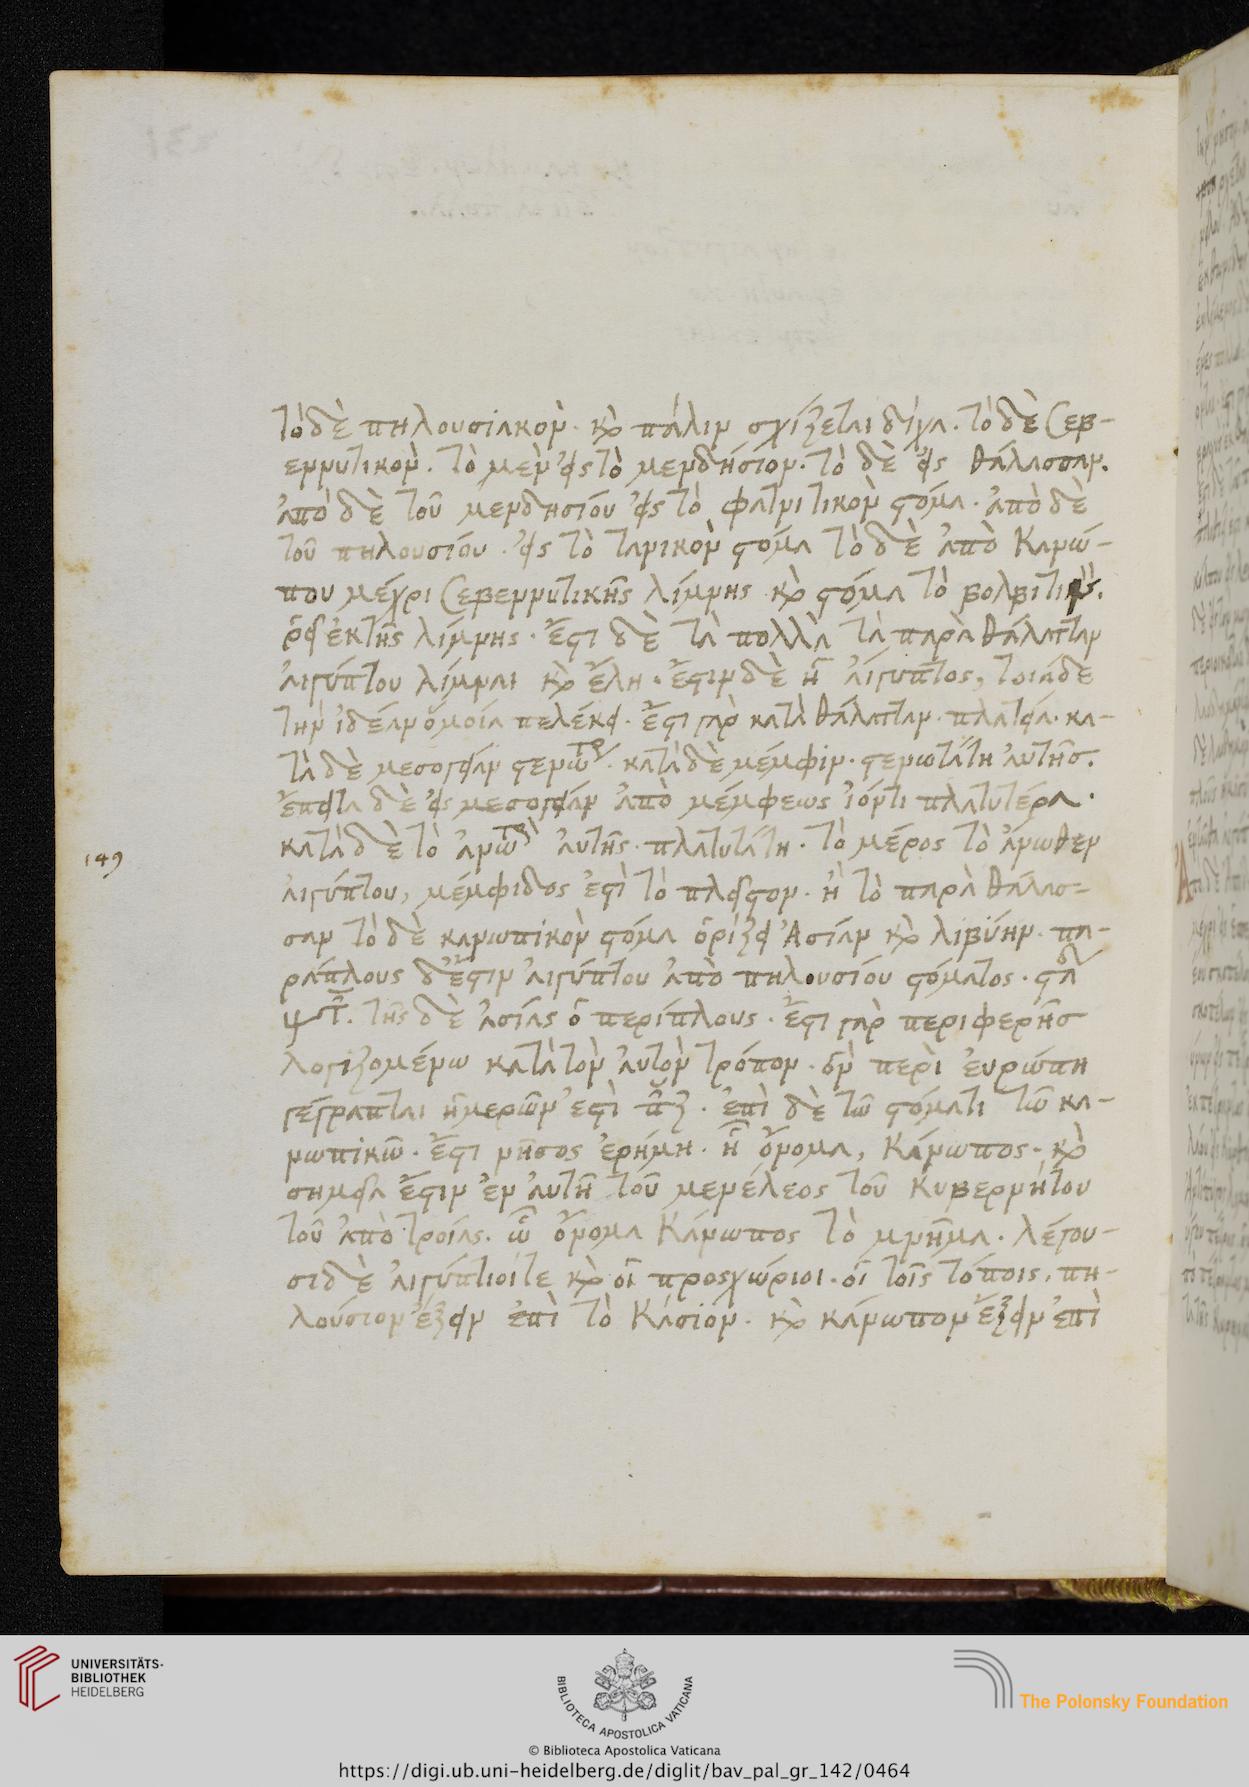 τὸ δὲ πηλουσιακὸν· καὶ πάλιν σχίζεται δίχα. τὸ δὲ Σεβ-
εννυτικὸν. τὸ μὲν εἰς τὸ μενδήσιον· τὸ δὲ εἰς θάλασσαν.
ἀπὸ δὲ τοῦ μενδησίου εἰς τὸ φατνιτικὸν στόμα· ἀπὸ δὲ
τοῦ πηλουσίου· εἰς τὸ τανικὸν στόμα τὸ δὲ ἀπὸ Κανώ-
που μέχρι Σεβεννυτικῆς λίμνης καὶ στόμα τὸ
ῥεῖ ἐκ τῆς λίμνης· ἔστι δὲ τὰ πολλὰ τὰ παρὰ θάλατταν
αἰγύπτου λίμναι καὶ ἕλη· ἔστιν δὲ ἡ αἴγυπτος, τοιάδε
τὴν ἰδέαν ὁμοία πελέκει· ἔστι γὰρ κατὰ θάλατταν· πλατεῖα· κα-
τὰ δὲ μεσογείαν στενωτρ· κατὰ δὲ μέμφιν· στενωτάτη αὐτῆς.
ἔπειτα δὲ εἰς μεσογείαν ἀπὸ μέμφεως ἰόντι πλατυτέρα·
κατὰ δὲ τὸ ἀνωτρ αὐτῆς· πλατυτάτη· τὸ μέρος τὸ ἄνωθεν
αἰγύπτου, μέμφιδος ἐστὶ τὸ πλεῖστον· ἢ τὸ παρὰ θάλασ-
σαν τὸ δὲ κανωπικὸν στόμα ὁρίζει Ἀσίαν καὶ λιβύην· πα-
ράπλους δ' ἔστιν αἰγύπτου ἀπὸ πηλουσίου στόματος· στδ
͵ατ. τῆς δὲ ἀσίας ὁ περίπλους· ἔστι γὰρ περιφερὴς
λογιζομένω κατὰ τὸν αὐτὸν τρόπον· ὃν περὶ ἐυρώπη
γέγραπται ἡμερῶν ἐστὶ πζ· ἐπὶ δὲ τῶ στόματι τῶ κα-
νωπικῶ· ἔστι νῆσος ἐρήμη· ἧ ὄνομα, Κάνωπος· καὶ
σημεῖα ἔστιν ἐν αὐτῆ τοῦ μενέλεος τοῦ Κυβερνήτου
τοῦ ἀπὸ τροίας· ὧ ὄνομα Κάνωπος τὸ μνῆμα· λέγου-
σι δὲ αἰγύπτιοί τε καὶ οἱ προσχώριοι· οἱ τοῖς τόποις, πη-
λούσιον ἕξειν ἐπὶ τὸ Κάσιον· καὶ κάνωπον ἕξειν ἐπὶ
149
UNIVERSITÄTS-
BIBLIOTHEK
HEIDELBERG
BIBLIOTECA APOSTOLICA VATICANA
The Polonsky Foundation
© Biblioteca Apostolica Vaticana
https://digi.ub.uni-heidelberg.de/diglit/bav_pal_gr_142/0464